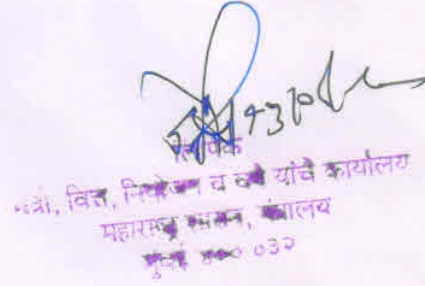 लिपिक
मंत्री, वित्त, नियोजन व वने यांचे कार्यालय
महाराष्ट्र शासन, मंत्रालय
मुंबई ४०० ०३२